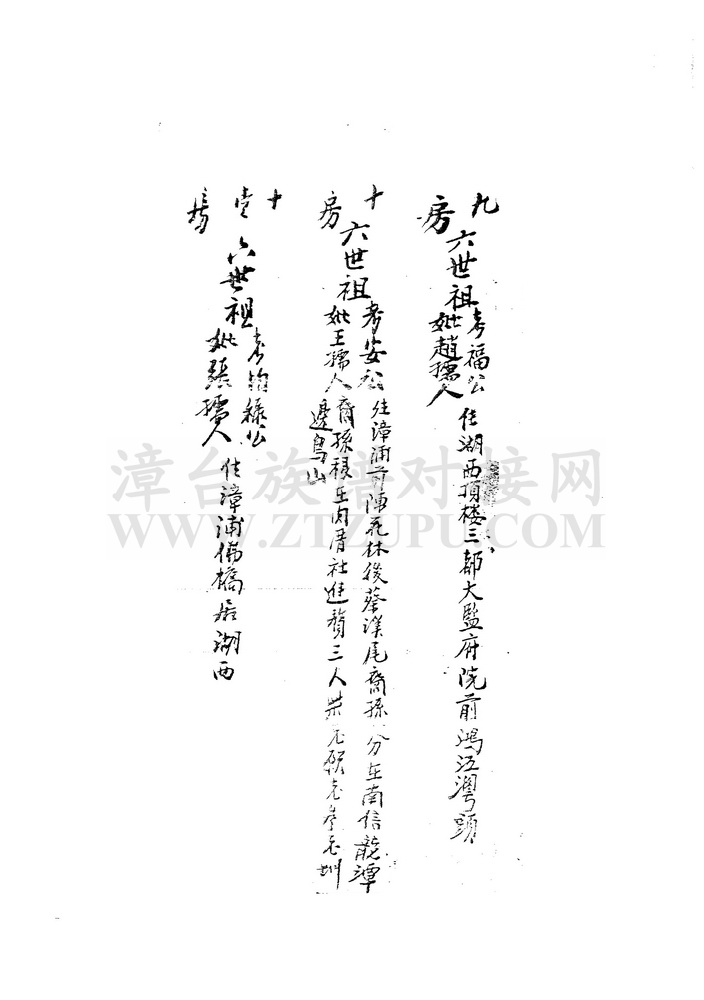 九房
六世祖
考福公
妣趙孺人
住湖西頂楼三都大監府院前鴻江灣頭
十房
六世祖
考安公
妣王孺人
住漳浦陳花林後蔡溪尾裔孫分在南信龍潭
裔孫移在内厝社進贅三人
邊烏山
十壹房
六世祖
考綠公
妣張孺人
住漳浦佛橋居湖西
漳台族谱对接网
WWW.ZTZUPU.COM